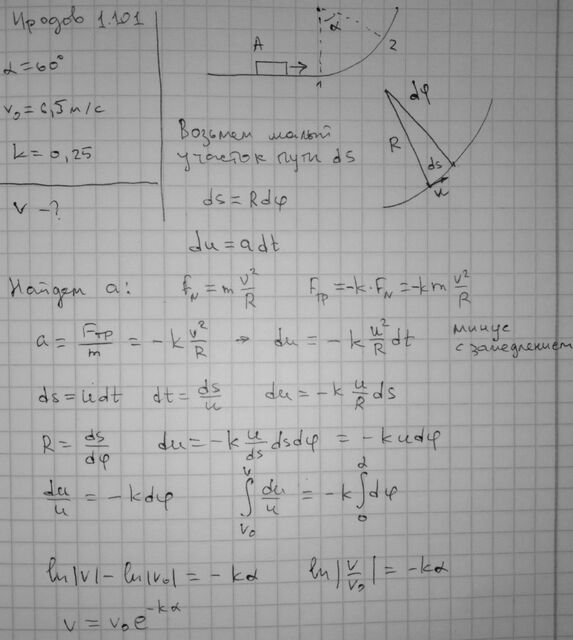 Иродов 1.101
α = 60°
v₀ = 6,5 м/с
k = 0,25
v – ?
A
α
1
2
dφ
R
ds
u
Возьмем малый
участок пути ds
ds = R dφ
du = a dt
Найдем a: F_N = m v²/R F_тр = –k·F_N = –k m v²/R
a = F_тр/m = –k v²/R → du = –k u²/R dt минус
с замедлением
ds = u dt dt = ds/u du = –k u/R ds
R = ds/dφ du = –k u/ds ds dφ = –k u dφ
du/u = –k dφ ∫_{v₀}^{v} du/u = –k ∫_0^α dφ
ln|v| – ln|v₀| = –kα ln|v/v₀| = –kα
v = v₀ e^{–kα}